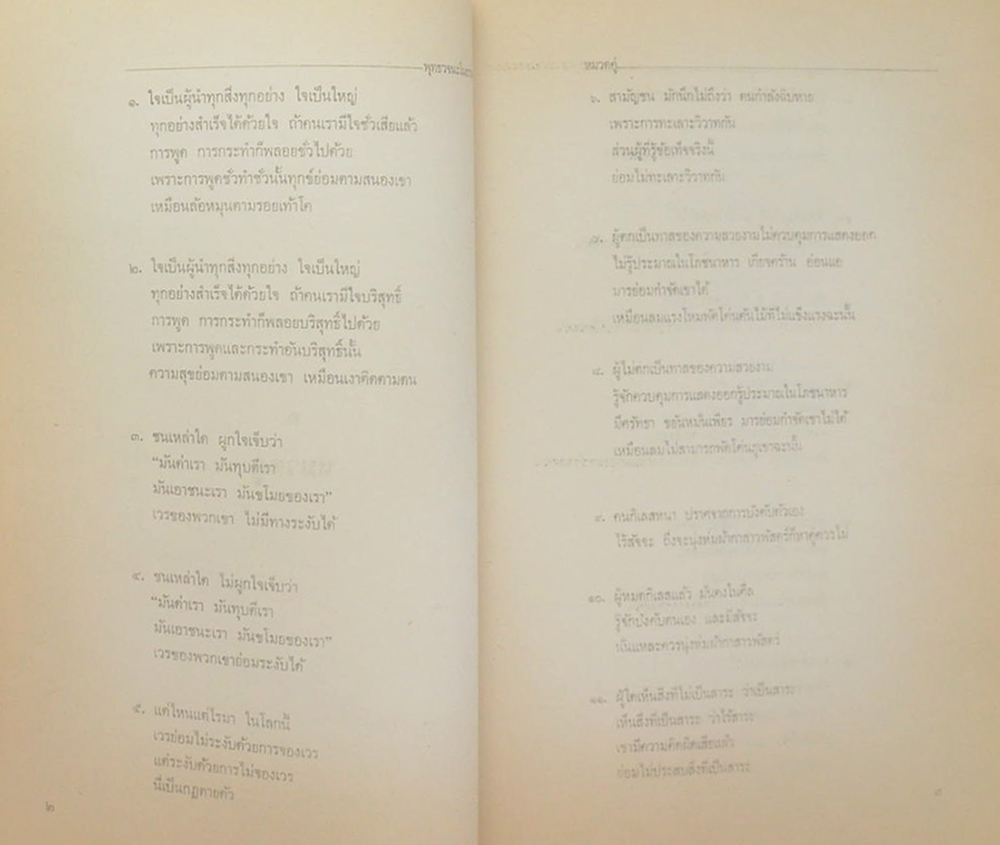 พุทธวจนะใน
๑. ใจเป็นผู้นำทุกสิ่งทุกอย่าง ใจเป็นใหญ่
ทุกอย่างสำเร็จได้ด้วยใจ ถ้าคนเรามีใจชั่วเสียแล้ว
การพูด การกระทำก็พลอยชั่วไปด้วย
เพราะการพูดชั่วทำชั่วนั้นทุกข์ย่อมตามสนองเขา
เหมือนล้อหมุนตามรอยเท้าโค
๒. ใจเป็นผู้นำทุกสิ่งทุกอย่าง ใจเป็นใหญ่
ทุกอย่างสำเร็จได้ด้วยใจ ถ้าคนเรามีใจบริสุทธิ์
การพูด การกระทำก็พลอยบริสุทธิ์ไปด้วย
เพราะการพูดและกระทำอันบริสุทธิ์นั้น
ความสุขย่อมตามสนองเขา เหมือนเงาติดตามตน
๓. ชนเหล่าใด ผูกใจเจ็บว่า
"มันด่าเรา มันทุบตีเรา
มันเอาชนะเรา มันขโมยของเรา"
เวรของพวกเขา ไม่มีทางระงับได้
๔. ชนเหล่าใด ไม่ผูกใจเจ็บว่า
"มันด่าเรา มันทุบตีเรา
มันเอาชนะเรา มันขโมยของเรา"
เวรของพวกเขาย่อมระงับได้
๕. แต่ไหนแต่ไรมา ในโลกนี้
เวรย่อมไม่ระงับด้วยการจองเวร
แต่ระงับด้วยการไม่จองเวร
นี่เป็นกฎตายตัว
๒
หมวดคู่
๖. สามัญชน มักนึกไม่ถึงว่า ตนกำลังฉิบหาย
เพราะการทะเลาะวิวาทกัน
ส่วนผู้ที่รู้ข้อเท็จจริงนี้
ย่อมไม่ทะเลาะวิวาทกัน
๗. ผู้ตกเป็นทาสของความสวยงามไม่ควบคุมการแสดงออก
ไม่รู้ประมาณในโภชนาหาร เกียจคร้าน อ่อนแอ
มารย่อมกำจัดเขาได้
เหมือนลมแรงโหมพัดโค่นต้นไม้ที่ไม่แข็งแรงฉะนั้น
๘. ผู้ไม่ตกเป็นทาสของความสวยงาม
รู้จักควบคุมการแสดงออกรู้ประมาณในโภชนาหาร
มีศรัทธา ขยันหมั่นเพียร มารย่อมกำจัดเขาไม่ได้
เหมือนลมไม่สามารถพัดโค่นภูเขาฉะนั้น
๙. คนกิเลสหนา ปราศจากการบังคับตัวเอง
ไร้สัจจะ ถึงจะนุ่งห่มผ้ากาสาวพัสตร์ก็หาคู่ควรไม่
๑๐. ผู้หมดกิเลสแล้ว มั่นคงในศีล
รู้จักบังคับตนเอง และมีสัจจะ
นั่นแหละควรนุ่งห่มผ้ากาสาวพัสตร์
๑๑. ผู้ใดเห็นสิ่งที่ไม่เป็นสาระ ว่าเป็นสาระ
เห็นสิ่งที่เป็นสาระ ว่าไร้สาระ
เขามีความคิดผิดเสียแล้ว
ย่อมไม่ประสบสิ่งที่เป็นสาระ